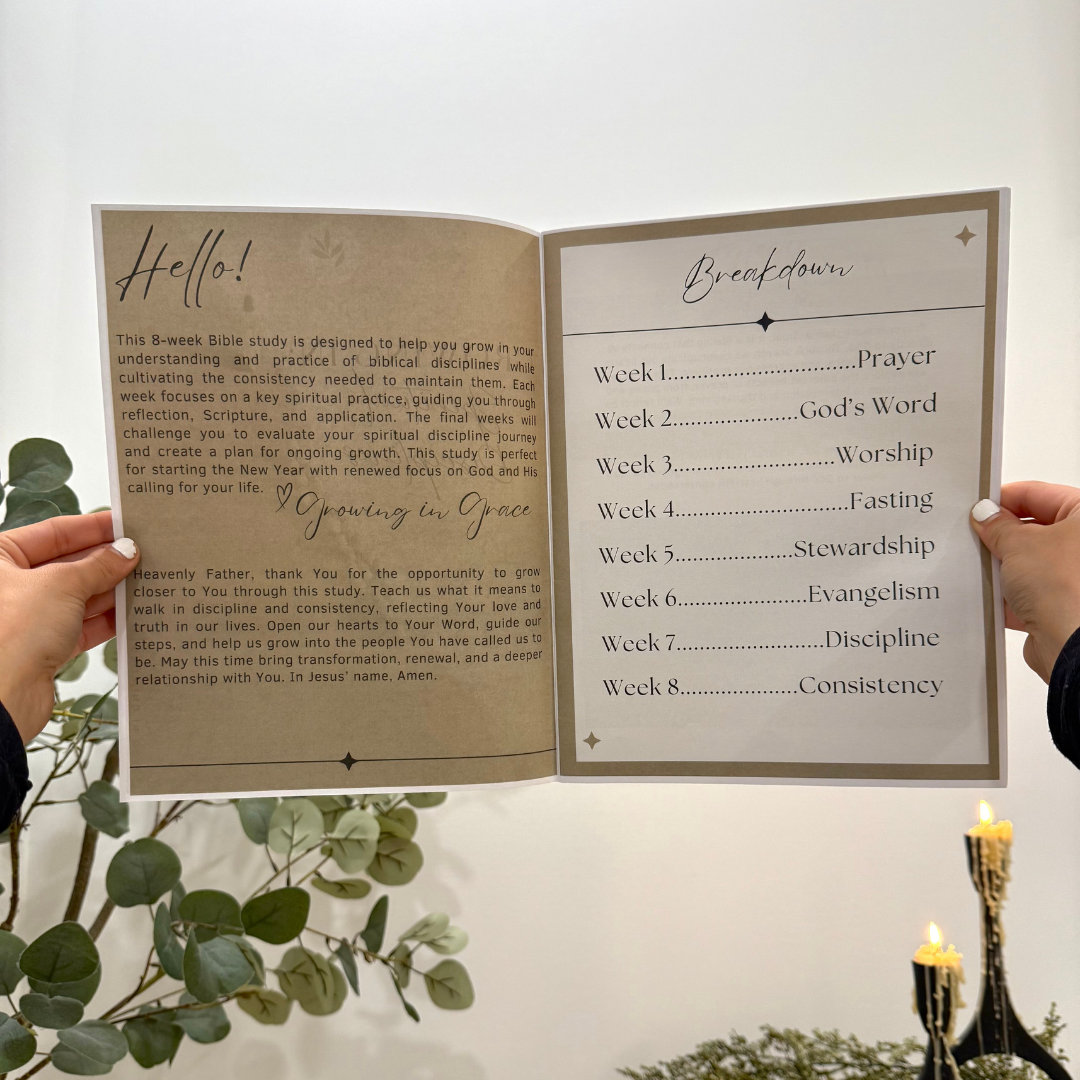 Hello!
This 8-week Bible study is designed to help you grow in your
understanding and practice of biblical disciplines while
cultivating the consistency needed to maintain them. Each
week focuses on a key spiritual practice, guiding you through
reflection, Scripture, and application. The final weeks will
challenge you to evaluate your spiritual discipline journey
and create a plan for ongoing growth. This study is perfect
for starting the New Year with renewed focus on God and His
calling for your life.
Growing in Grace
Heavenly Father, thank You for the opportunity to grow
closer to You through this study. Teach us what it means to
walk in discipline and consistency, reflecting Your love and
truth in our lives. Open our hearts to Your Word, guide our
steps, and help us grow into the people You have called us to
be. May this time bring transformation, renewal, and a deeper
relationship with You. In Jesus' name, Amen.
Breakdown
Week 1..............................Prayer
Week 2....................God's Word
Week 3..........................Worship
Week 4............................Fasting
Week 5...................Stewardship
Week 6.....................Evangelism
Week 7........................Discipline
Week 8...................Consistency